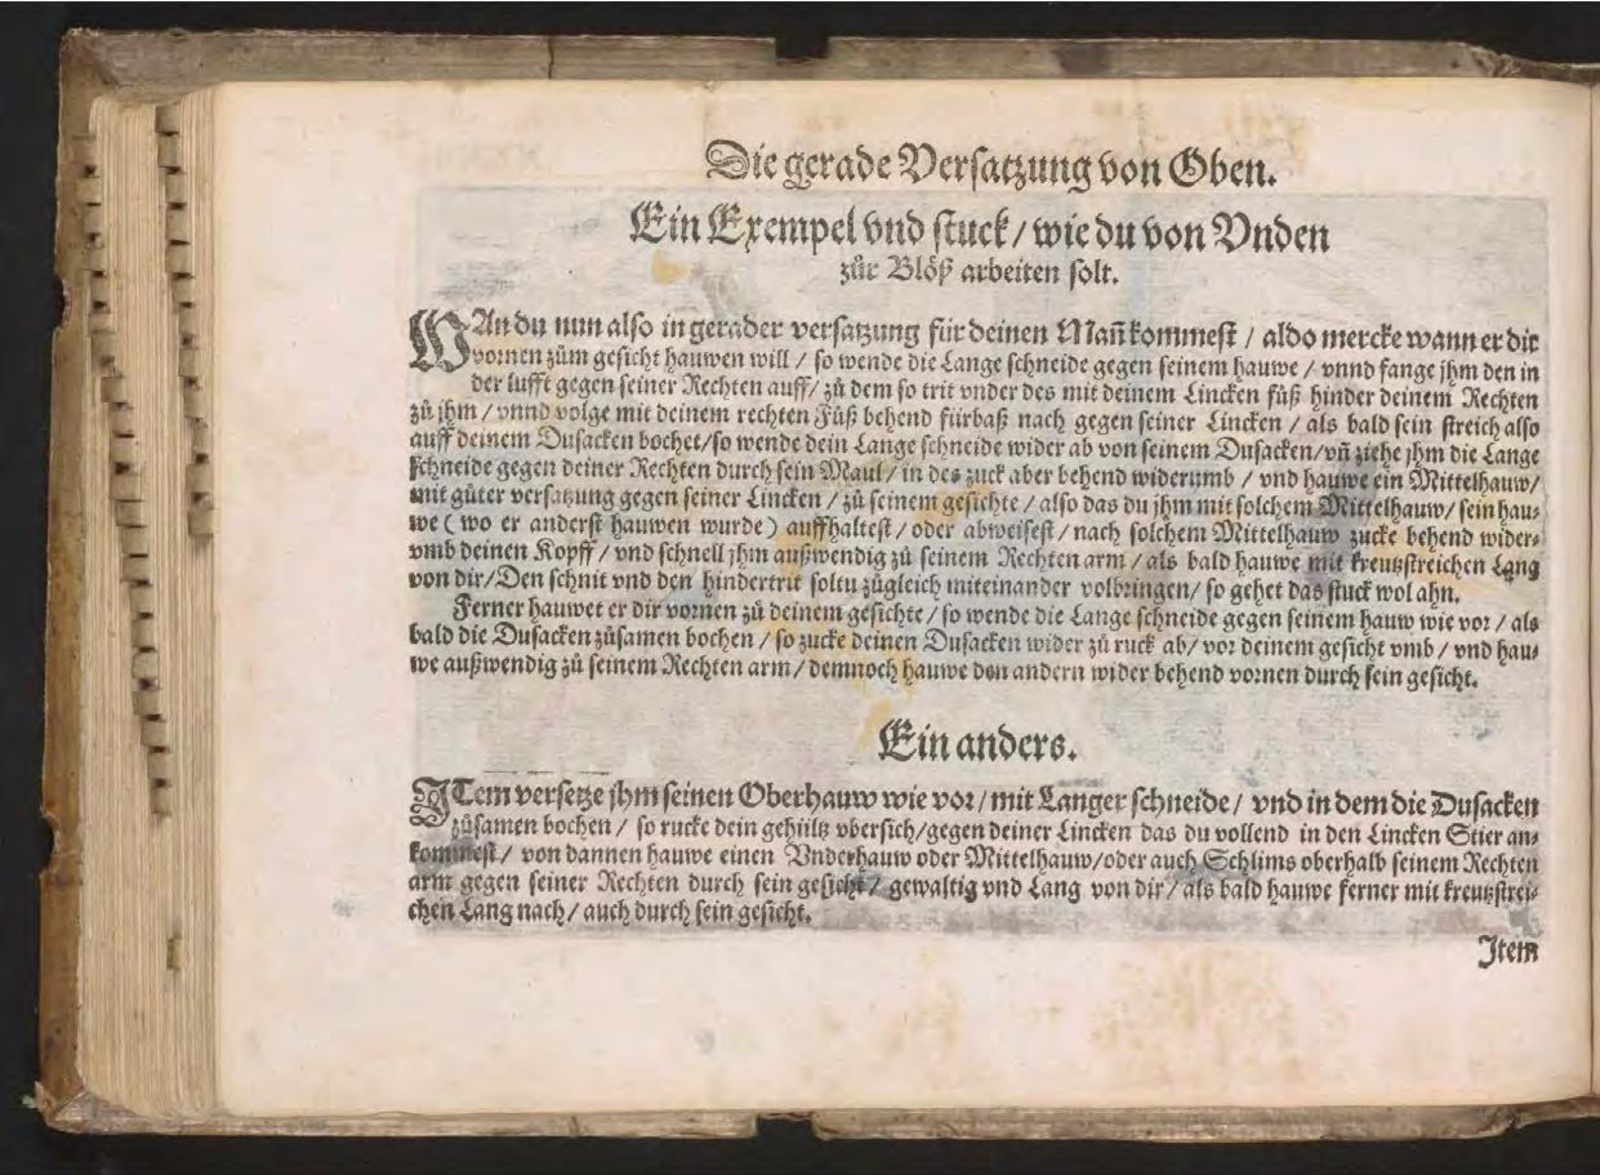 Die gerade Versatzung von Oben.
Ein Exempel vnd stuck / wie du von Vnden
zůr Blöß arbeiten solt.
WAn du nun also in gerader versatzung für deinen Mañ kommest / aldo mercke wann er dir
vornen zům gesicht hauwen will / so wende die Lange schneide gegen seinem hauwe / vnnd fange jhm den in
der lufft gegen seiner Rechten auff / zů dem so trit vnder des mit deinem Lincken fůß hinder deinem Rechten
zů jhm / vnnd volge mit deinem rechten Fůß behend fürbaß nach gegen seiner Lincken / als bald sein streich also
auff deinem Dusacken bochet / so wende dein Lange schneide wider ab von seinem Dusacken / vñ ziehe jhm die Lange
schneide gegen deiner Rechten durch sein Maul / in des zuck aber behend widerumb / vnd hauwe ein Mittelhauw /
mit gůter versatzung gegen seiner Lincken / zů seinem gesichte / also das du jhm mit solchem Mittelhauw / sein hau⸗
we ( wo er anderst hauwen wurde ) auffhaltest / oder abweisest / nach solchem Mittelhauw zucke behend wider⸗
vmb deinen Kopff / vnd schnell jhm außwendig zů seinem Rechten arm / als bald hauwe mit kreutzstreichen Lang
von dir / Den schnit vnd den hindertrit soltu zůgleich miteinander volbringen / so gehet das stuck wol ahn.
Ferner hauwet er dir vornen zů deinem gesichte / so wende die Lange schneide gegen seinem hauw wie vor / als
bald die Dusacken zůsamen bochen / so zucke deinen Dusacken wider zů ruck ab / vor deinem gesicht vmb / vnd hau⸗
we außwendig zů seinem Rechten arm / demnoch hauwe den andern wider behend vornen durch sein gesicht.
Ein anders.
JTem versetze jhm seinen Oberhauw wie vor / mit Langer schneide / vnd in dem die Dusacken
zůsamen bochen / so rucke dein gehültz vbersich / gegen deiner Lincken das du vollend in den Lincken Stier an⸗
kommest / von dannen hauwe einen Vnderhauw oder Mittelhauw / oder auch Schlims oberhalb seinem Rechten
arm gegen seiner Rechten durch sein gesicht / gewaltig vnd Lang von dir / als bald hauwe ferner mit kreutzstrei⸗
chen Lang nach / auch durch sein gesicht.
Item